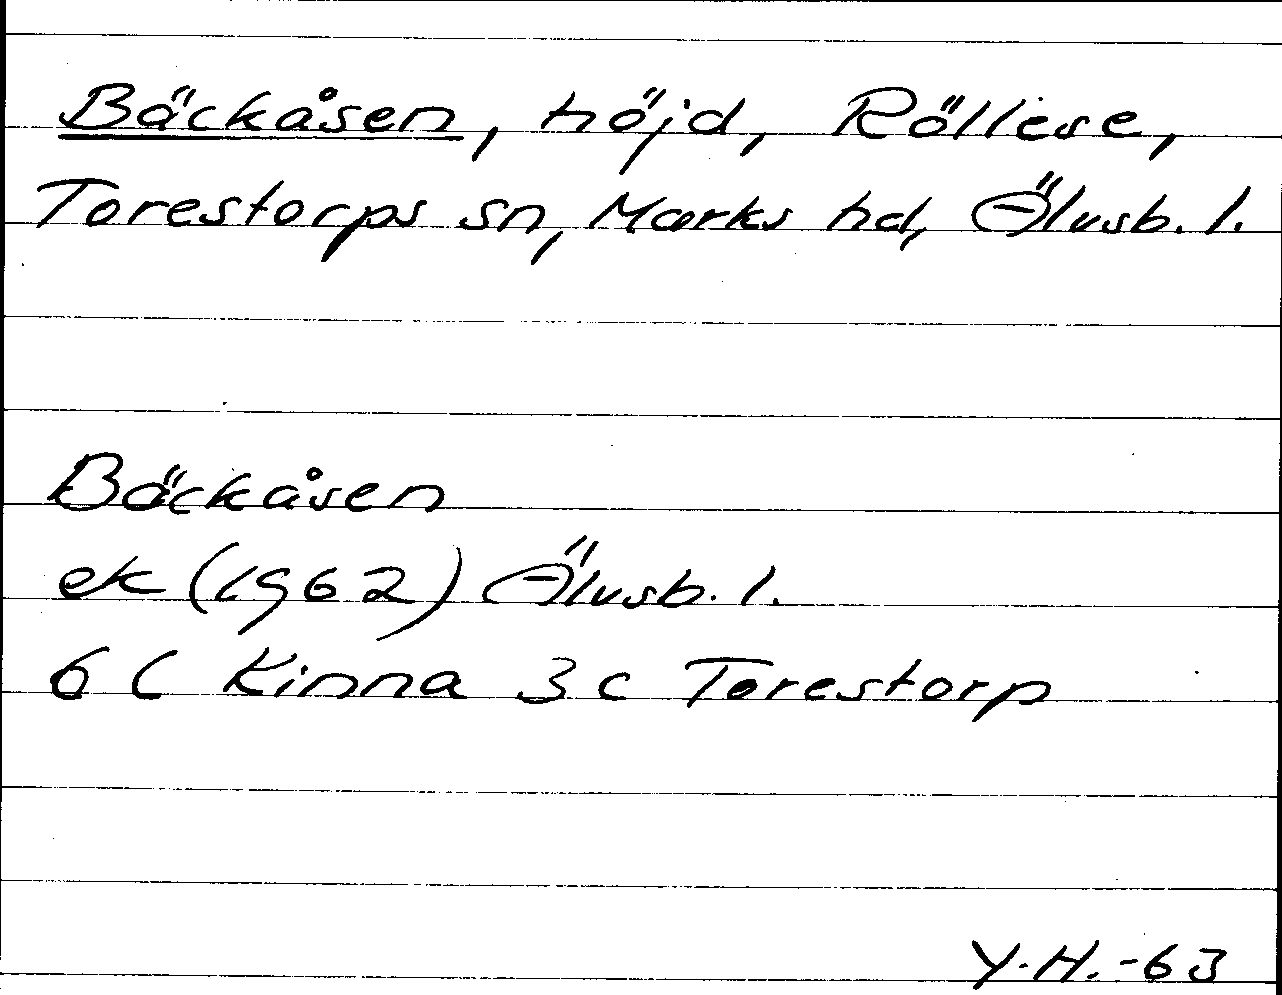 Bäckåsen, höjd, Röllese,
Torestorps sn, Marks hd, Älvsb. l.
Bäckåsen
ek (1962) Älvsb. l.
6 C Kinna 3 c Torestorp
Y.H.-63